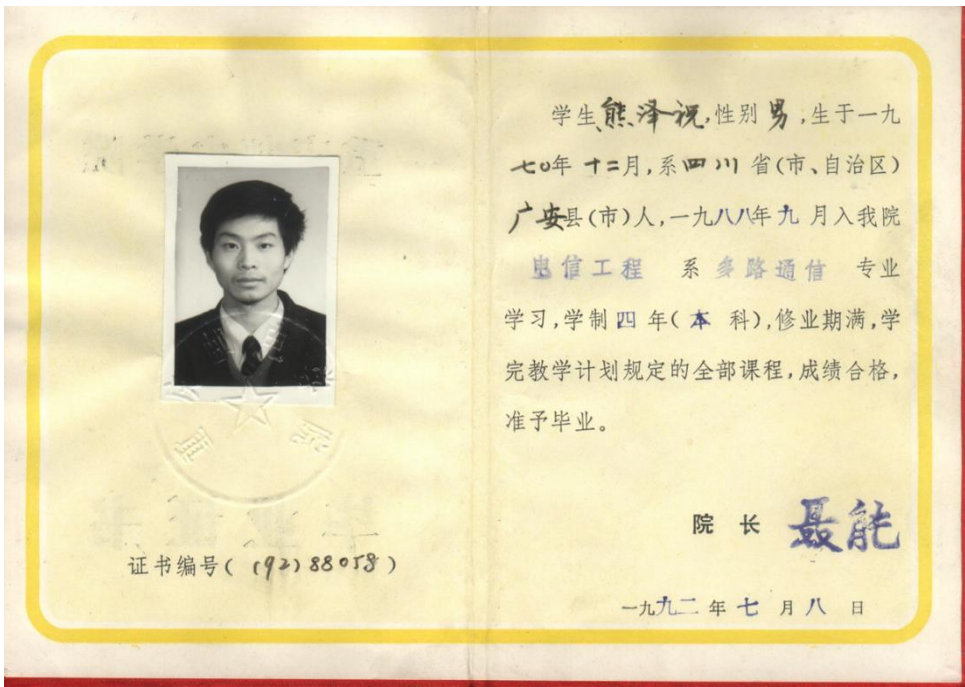 证书编号( (92)88058 )
学生 熊泽祝,性别 男 ,生于一九
七〇年 十二月,系四川 省(市、自治区)
广安县(市)人,一九八八年九月入我院
电信工程 系 多路通信 专业
学习,学制 四 年( 本 科),修业期满,学
完教学计划规定的全部课程,成绩合格,
准予毕业。
院 长 聂能
一九九二年 七 月 八 日